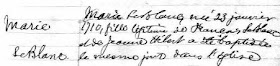 Marie
LeBlanc
Marie LeBlanc, née 23 janvier
1710, fille légitime de François LeBlanc
et de Jeanne Hébert a été baptisée
le mesme jour dans l'église